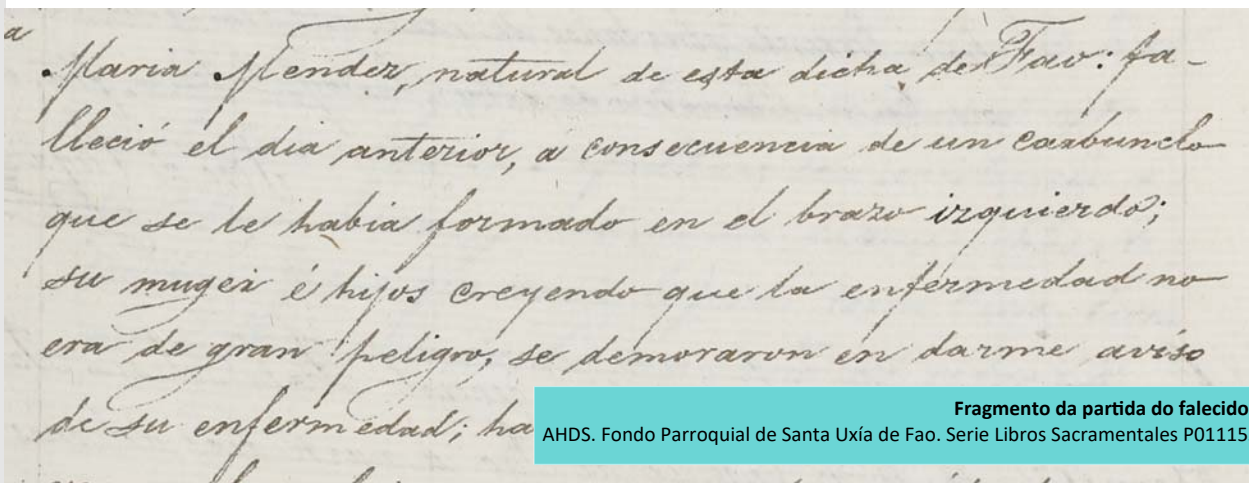 a
Maria Mendez, natural de esta dicha de Fao: fa-
lleció el dia anterior, a consecuencia de un carbunclo
que se le habia formado en el brazo izquierdo;
su muger é hijos creyendo que la enfermedad no
era de gran peligro, se demoraron en darme aviso
de su enfermedad; ha
Fragmento da partida do falecido
AHDS. Fondo Parroquial de Santa Uxía de Fao. Serie Libros Sacramentales P01115